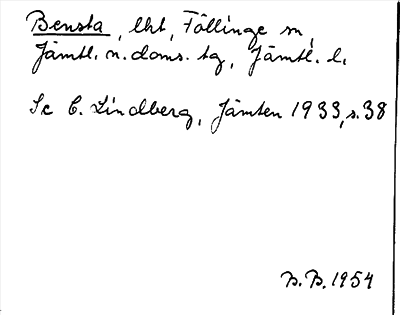 Bensta, lht, Föllinge sn,
Jämtl. n. doms. tg, Jämtl. l.
Se C. Lindberg, Jämten 1933, s. 38
B. B. 1954